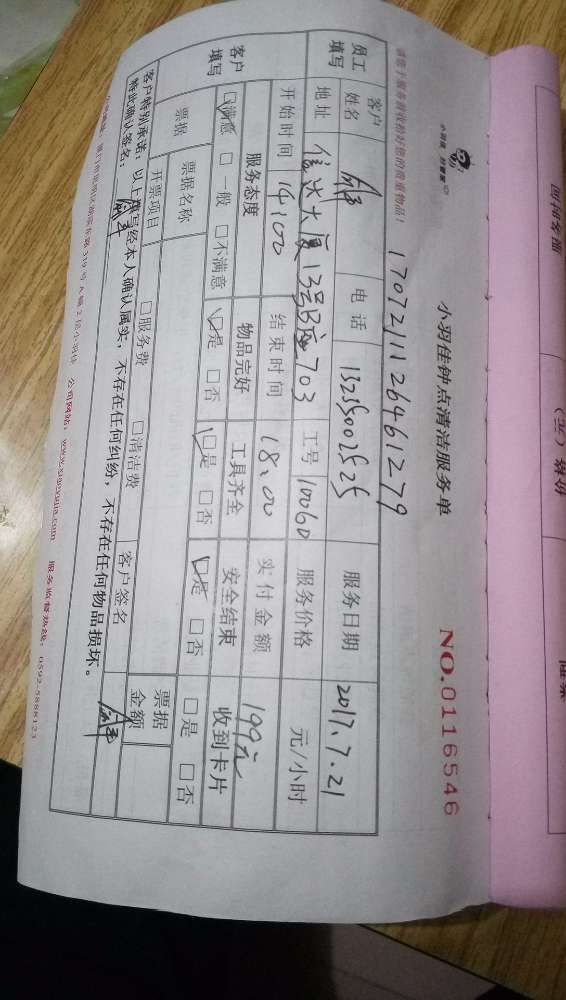 小羽佳钟点清洁服务单
NO.0116546
小羽佳 好管家
请您于服务前收检好您的贵重物品！
1707211126461279
员工填写 客户姓名 电话 13255002525 服务日期 2017.7.21
地址 信达大厦13号B座703 工号 10060 服务价格 元/小时
开始时间 14:00 结束时间 18:00 实付金额 199元
客户填写 服务态度 物品完好 工具齐全 安全结束 收到卡片
☑满意 □一般 □不满意 ☑是 □否 ☑是 □否 ☑是 □否 □是 □否
票据 票据名称 票据金额
开票项目 □服务费 □清洁费 客户签名
客户特别承诺：以上填写经本人确认属实，不存在任何纠纷，不存在任何物品损坏。
特此确认签名：
319号A幢2层小羽佳 公司网站： 服务监督热线：0592-5888123